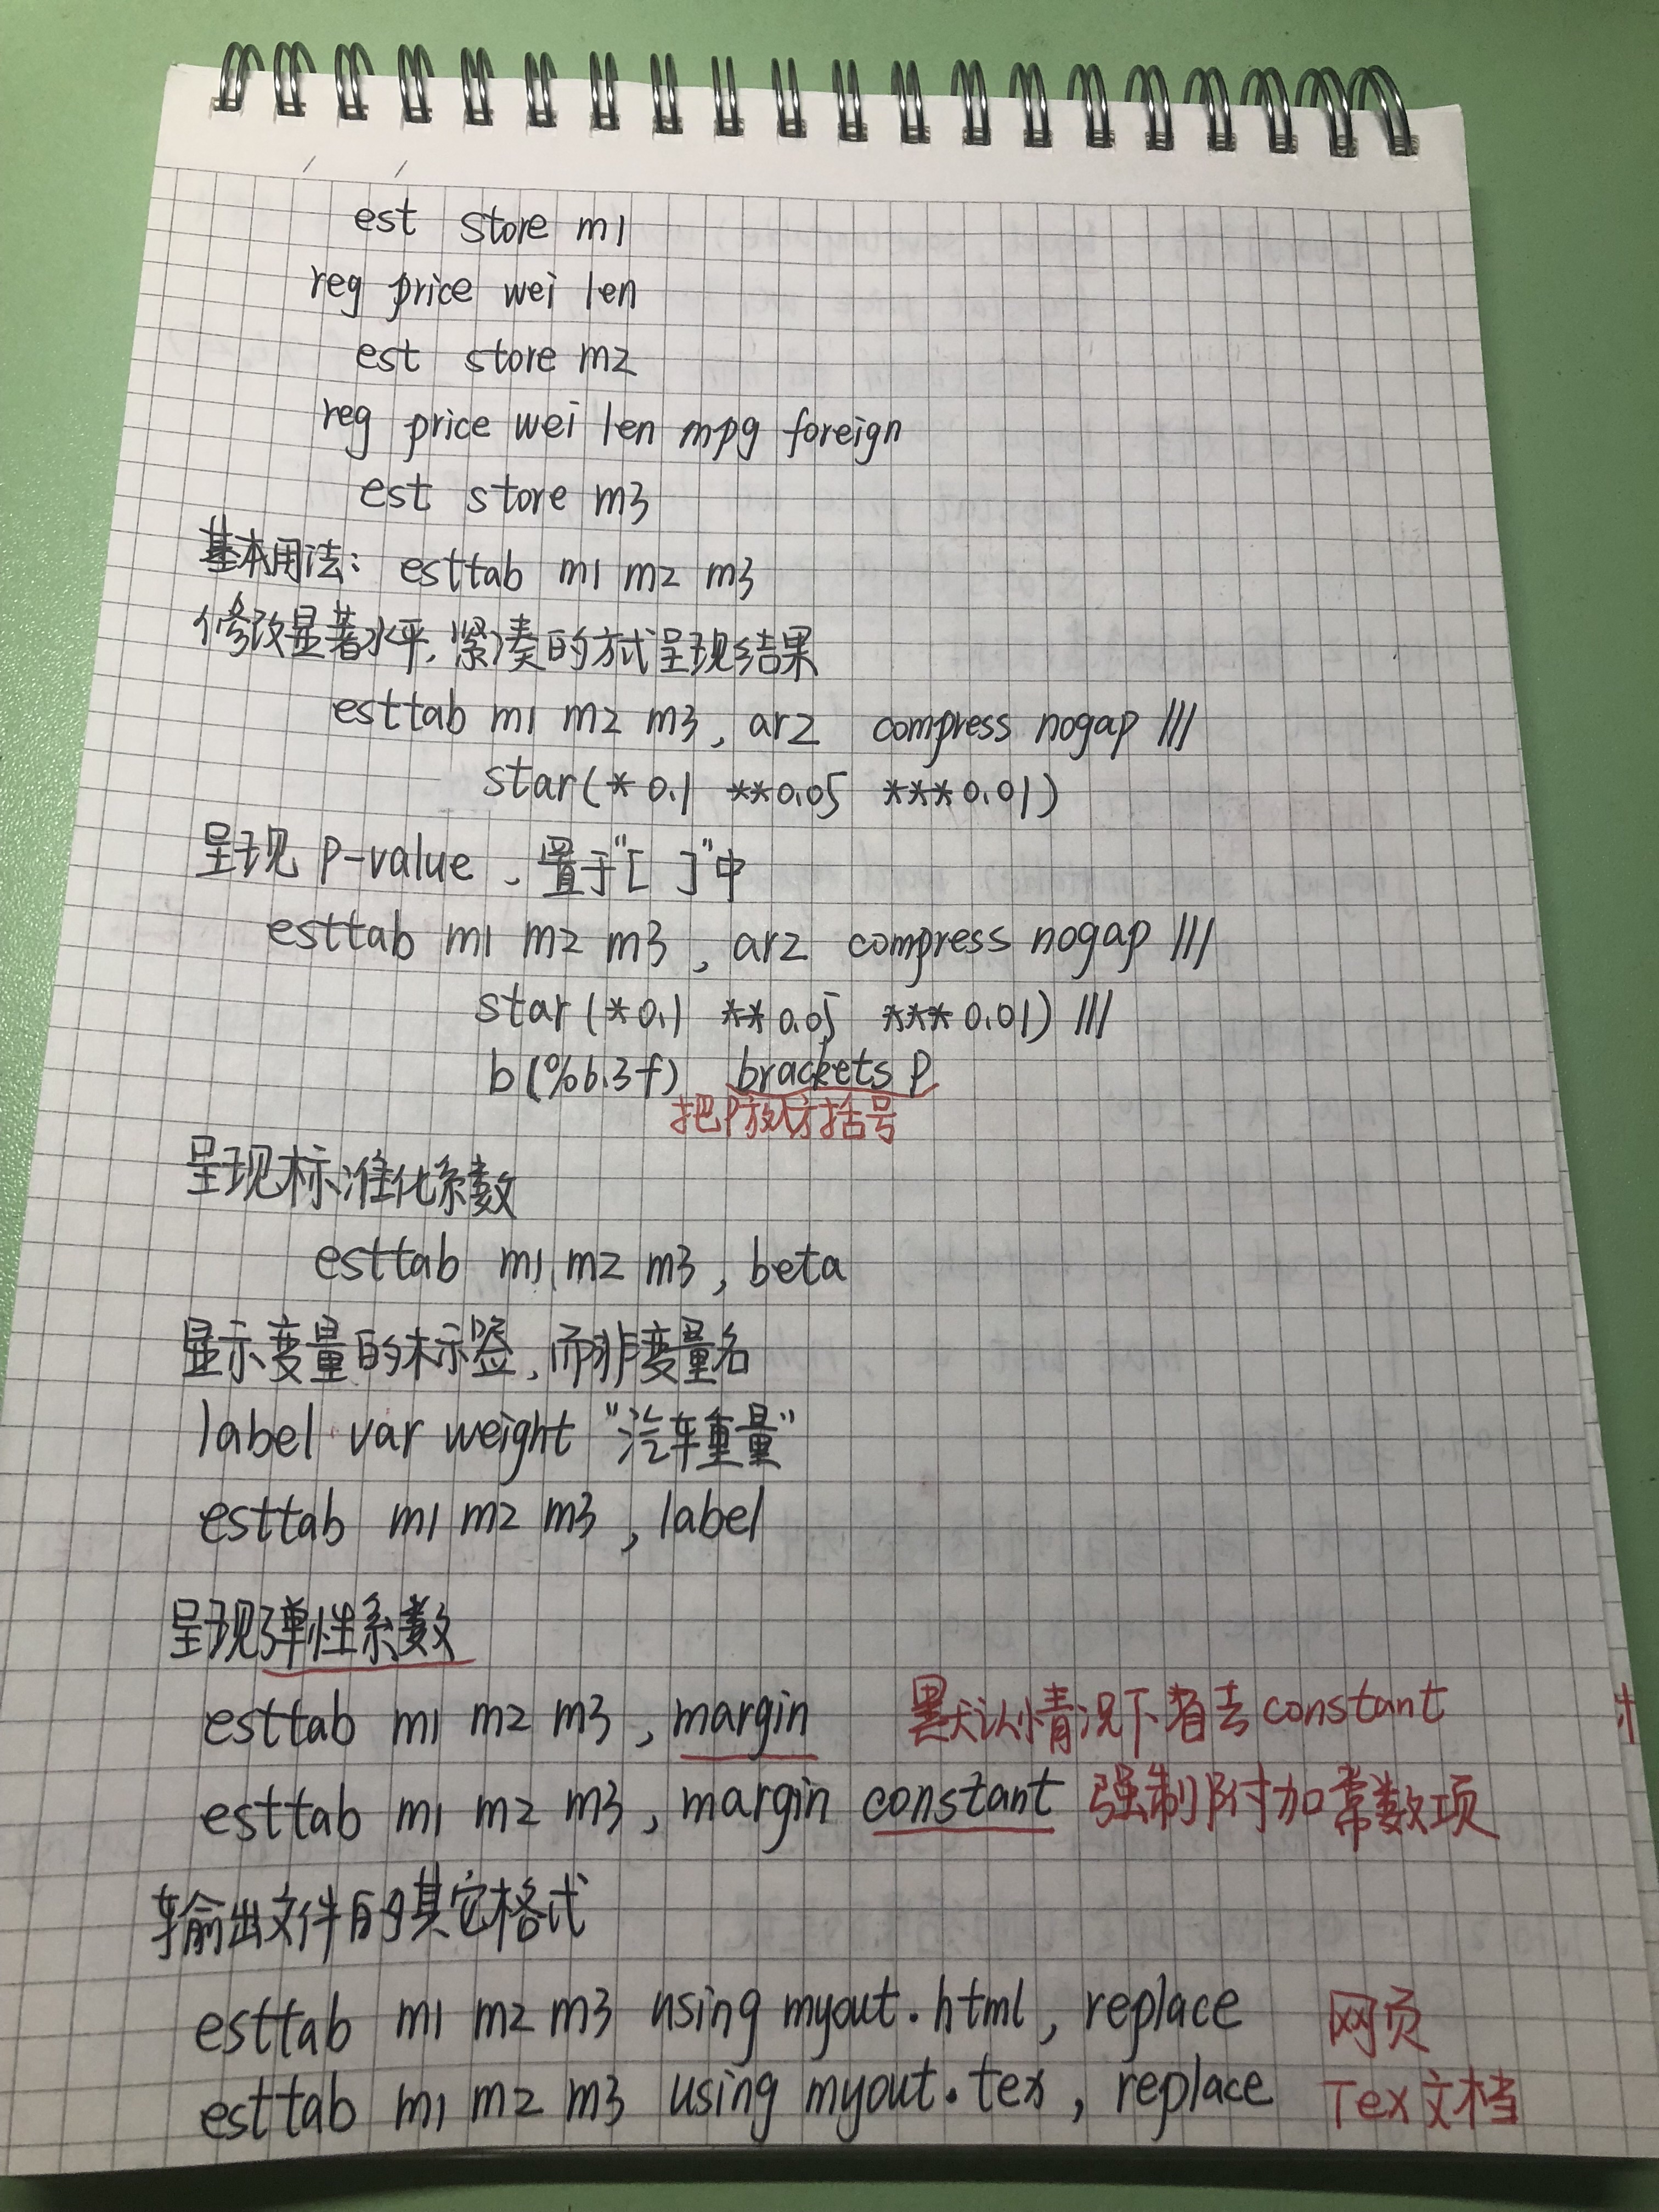 est store m1
reg price wei len
est store m2
reg price wei len mpg foreign
est store m3
基本用法: esttab m1 m2 m3
修改显著水平,紧凑的方式呈现结果
esttab m1 m2 m3, ar2 compress nogap ///
star(*0.1 **0.05 ***0.01)
呈现 P-value、置于"[ ]"中
esttab m1 m2 m3, ar2 compress nogap ///
star(*0.1 **0.05 ***0.01) ///
b(%6.3f) brackets p
把P放方括号
呈现标准化系数
esttab m1 m2 m3, beta
显示变量的标签,而非变量名
label var weight "汽车重量"
esttab m1 m2 m3, label
呈现弹性系数
esttab m1 m2 m3, margin 默认情况下省去constant
esttab m1 m2 m3, margin constant 强制附加常数项
输出文件的其它格式
esttab m1 m2 m3 using myout.html, replace 网页
esttab m1 m2 m3 using myout.tex, replace Tex文档